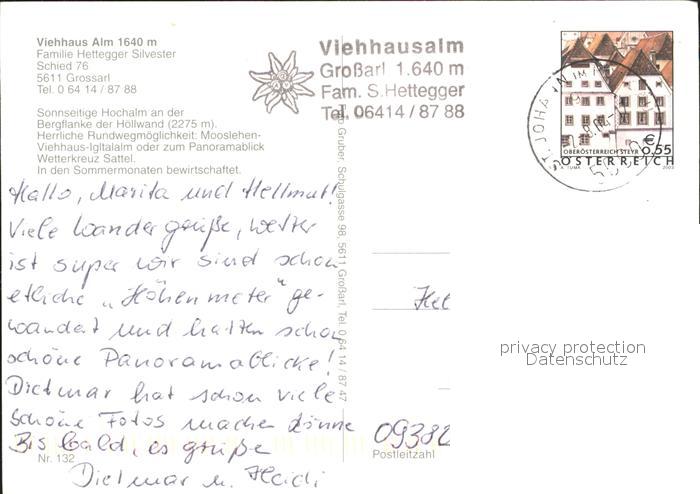 Viehhaus Alm 1640 m
Familie Hettegger Silvester
Schied 76
5611 Grossarl
Tel. 0 64 14 / 87 88
Sonnseitige Hochalm an der
Bergflanke der Höllwand (2275 m).
Herrliche Rundwegmöglichkeit: Mooslehen-
Viehhaus-Igltalalm oder zum Panoramablick
Wetterkreuz Sattel.
In den Sommermonaten bewirtschaftet.
Viehhausalm
Großarl 1.640 m
Fam. S. Hettegger
Tel. 06414 / 87 88
Hallo, Marita und Hellmut!
Viele Wandergrüße, Wetter
ist super wir sind schon
etliche „Höhenmeter" ge-
wandert und hatten schon
schöne Panoramablicke!
Dietmar hat schon viele
schöne Fotos machen können
Bis bald, es grüße
Dietmar u. Heidi
Nr. 132
Gruber, Schulgasse 98, 5611 Großarl, Tel. 0 64 14 / 87 47
ST. JOHANN IM
OBERÖSTERREICH STEYR
€ 0,55
ÖSTERREICH
A. TUMA 2003
Hel
09382
Postleitzahl
privacy protection
Datenschutz